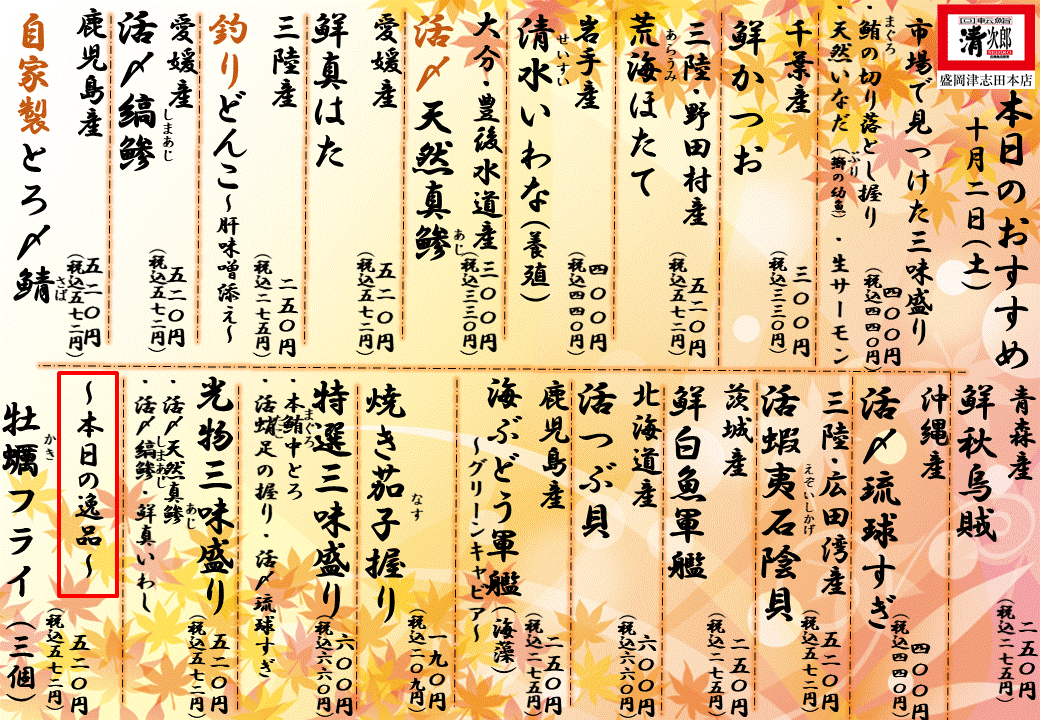 回転鮨
清次郎
SEIJIRO
盛岡津志田本店
本日のおすすめ
十月二日(土)
市場で見つけた三味盛り
・鮪の切り落とし握り
まぐろ
・天然いなだ(鰤の幼魚)・生サーモン
ぶり
四〇〇円
(税込四四〇円)
千葉産
鮮かつお
三〇〇円
(税込三三〇円)
三陸・野田村産
荒海ほたて
あらうみ
五二〇円
(税込五七二円)
岩手産
清水いわな(養殖)
せいすい
四〇〇円
(税込四四〇円)
大分・豊後水道産
活〆天然真鯵
あじ
三〇〇円
(税込三三〇円)
愛媛産
鮮真はた
五二〇円
(税込五七二円)
三陸産
釣りどんこ~肝味噌添え~
二五〇円
(税込二七五円)
愛媛産
活〆縞鯵
しまあじ
五二〇円
(税込五七二円)
鹿児島産
自家製とろ〆鯖
さば
五二〇円
(税込五七二円)
青森産
鮮秋烏賊
二五〇円
(税込二七五円)
沖縄産
活〆琉球すぎ
四〇〇円
(税込四四〇円)
三陸・広田湾産
活蝦夷石陰貝
えぞいしかげ
五二〇円
(税込五七二円)
茨城産
鮮白魚軍艦
二五〇円
(税込二七五円)
北海道産
活つぶ貝
六〇〇円
(税込六六〇円)
鹿児島産
海ぶどう軍艦(海藻)
~グリーンキャビア~
二五〇円
(税込二七五円)
焼き茄子握り
なす
一九〇円
(税込二〇九円)
特選三味盛り
・本鮪中とろ
まぐろ
・活蛸足の握り・活〆琉球すぎ
たこ
六〇〇円
(税込六六〇円)
光物三味盛り
・活〆天然真鯵
あじ
・活〆縞鯵・鮮真いわし
しまあじ
五二〇円
(税込五七二円)
~本日の逸品~
牡蠣フライ(三個)
かき
五二〇円
(税込五七二円)